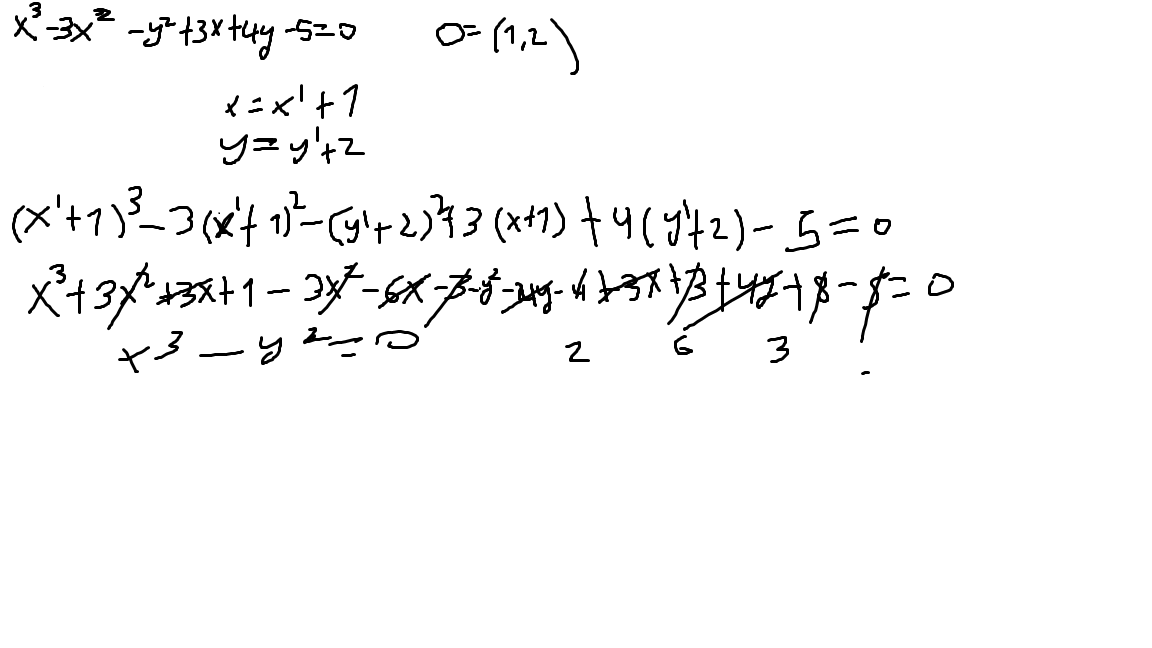 x³-3x²-y²+3x+4y-5=0 O=(1,2)
x=x'+1
y=y'+2
(x'+1)³-3(x'+1)²-(y'+2)²+3(x+1)+4(y'+2)-5=0
x³+3x²+3x+1-3x²-6x-3-y²-4y-4+3x+3+4y+8-5=0
x³-y²=0 2 6 3